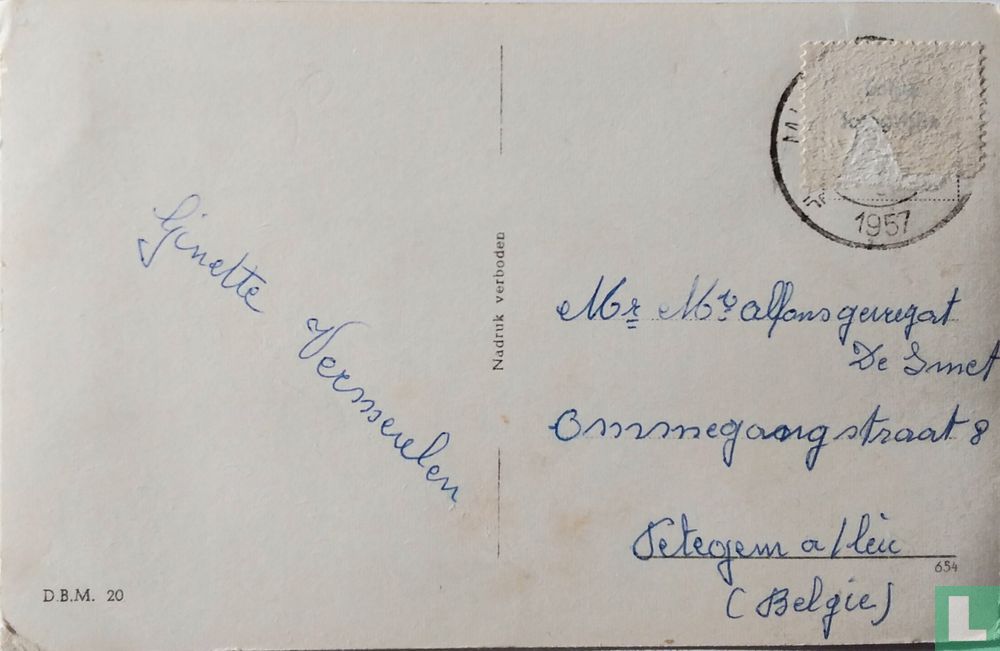 1957
Ginette Vermeulen
Nadruk verboden
Mr Mr alfons gevregat
De Smet
Ommegangstraat 8
Petegem a/leie
(Belgie)
654
D.B.M. 20
L